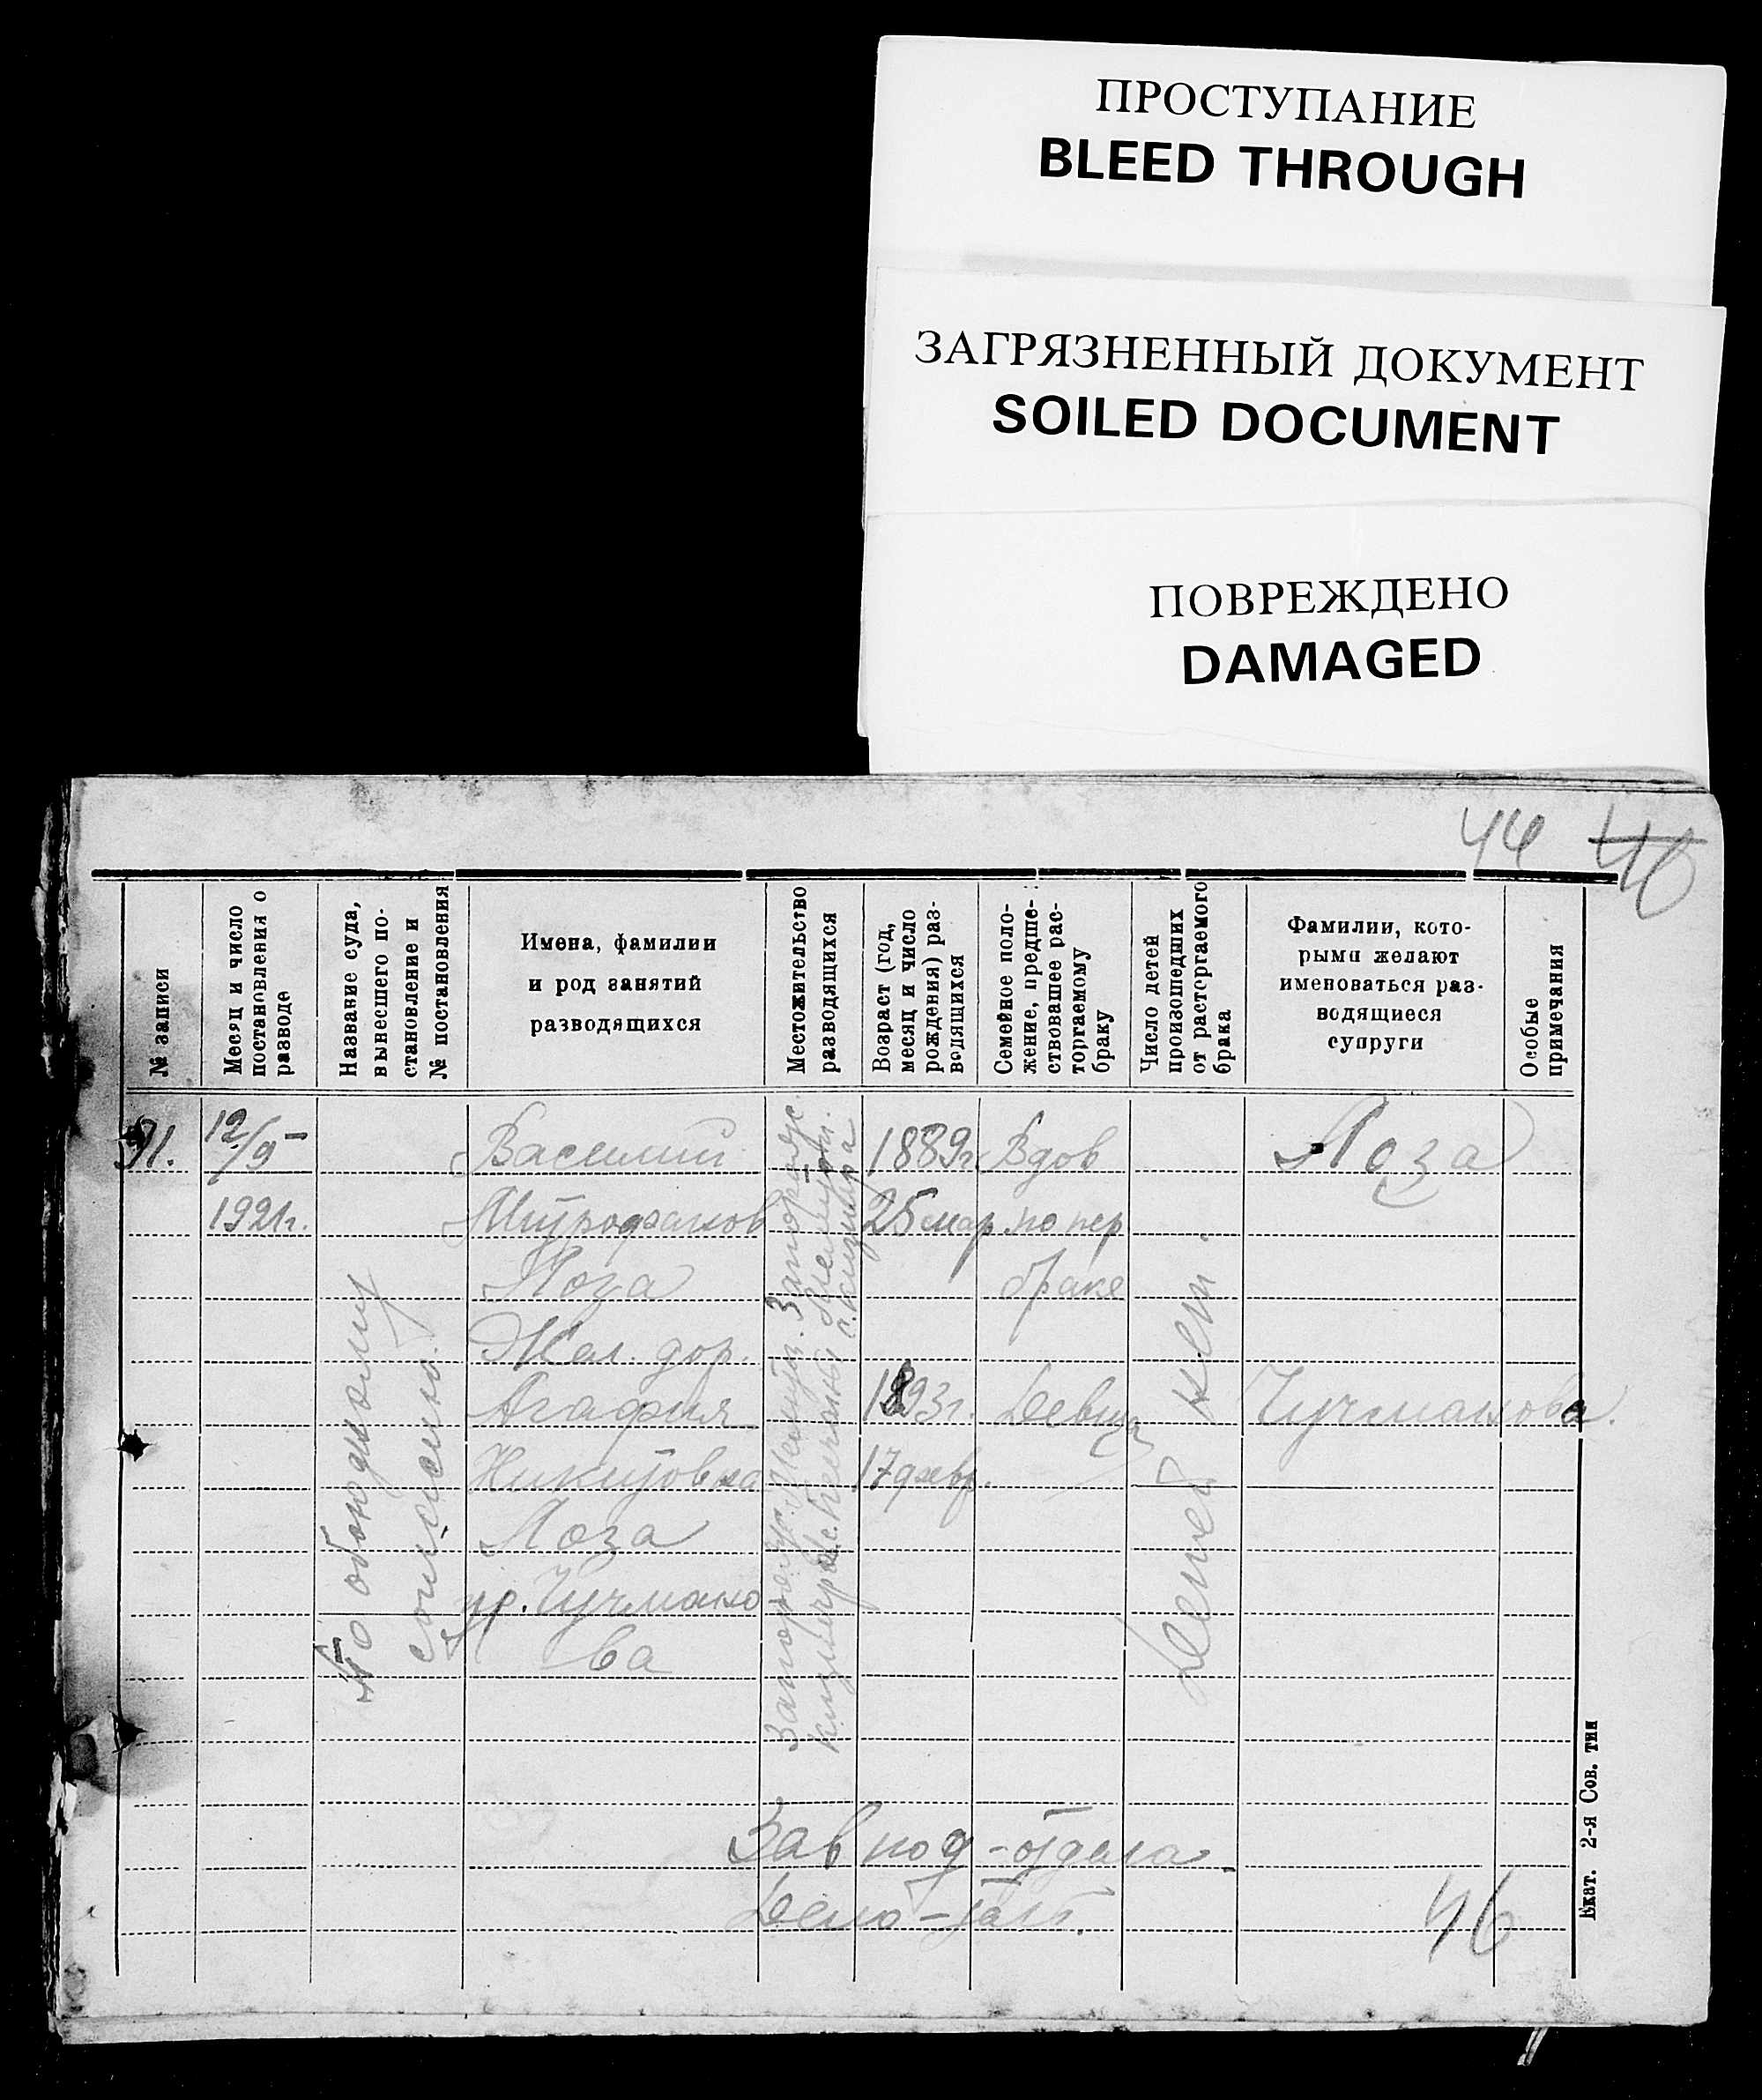 ПРОСТУПАНИЕ
BLEED THROUGH
ЗАГРЯЗНЕННЫЙ ДОКУМЕНТ
SOILED DOCUMENT
ПОВРЕЖДЕНО
DAMAGED
44 46
№ записи
Месяц и число
постановления о
разводе
Название суда,
вынесшего по-
становление и
№ постановления
Имена, фамилии
и род занятий
разводящихся
Местожительство
разводящихся
Возраст (год,
месяц и число
рождения) раз-
водящихся
Семейное поло-
жение, предше-
ствовавшее рас-
торгаемому
браку
Число детей
происшедших
от расторгаемого
брака
Фамилии, кото-
рыми желают
именоваться раз-
водящиеся
супруги
Особые
примечания
31.
12/9-
1921г.
По обоюдному
согласию
Василий
Митрофанов
Лоза
Жел. дор.
Агафия
Никитовна
Лоза
ур. Чучмано-
ва
Запорожс.
1889г.
25 мар.
1893г.
17 февр.
Вдов
по пер
браке
Девица
Детей нет.
Лоза
Чучманова.
Зав под-отдела
46
Екат. 2-я Сов. тип